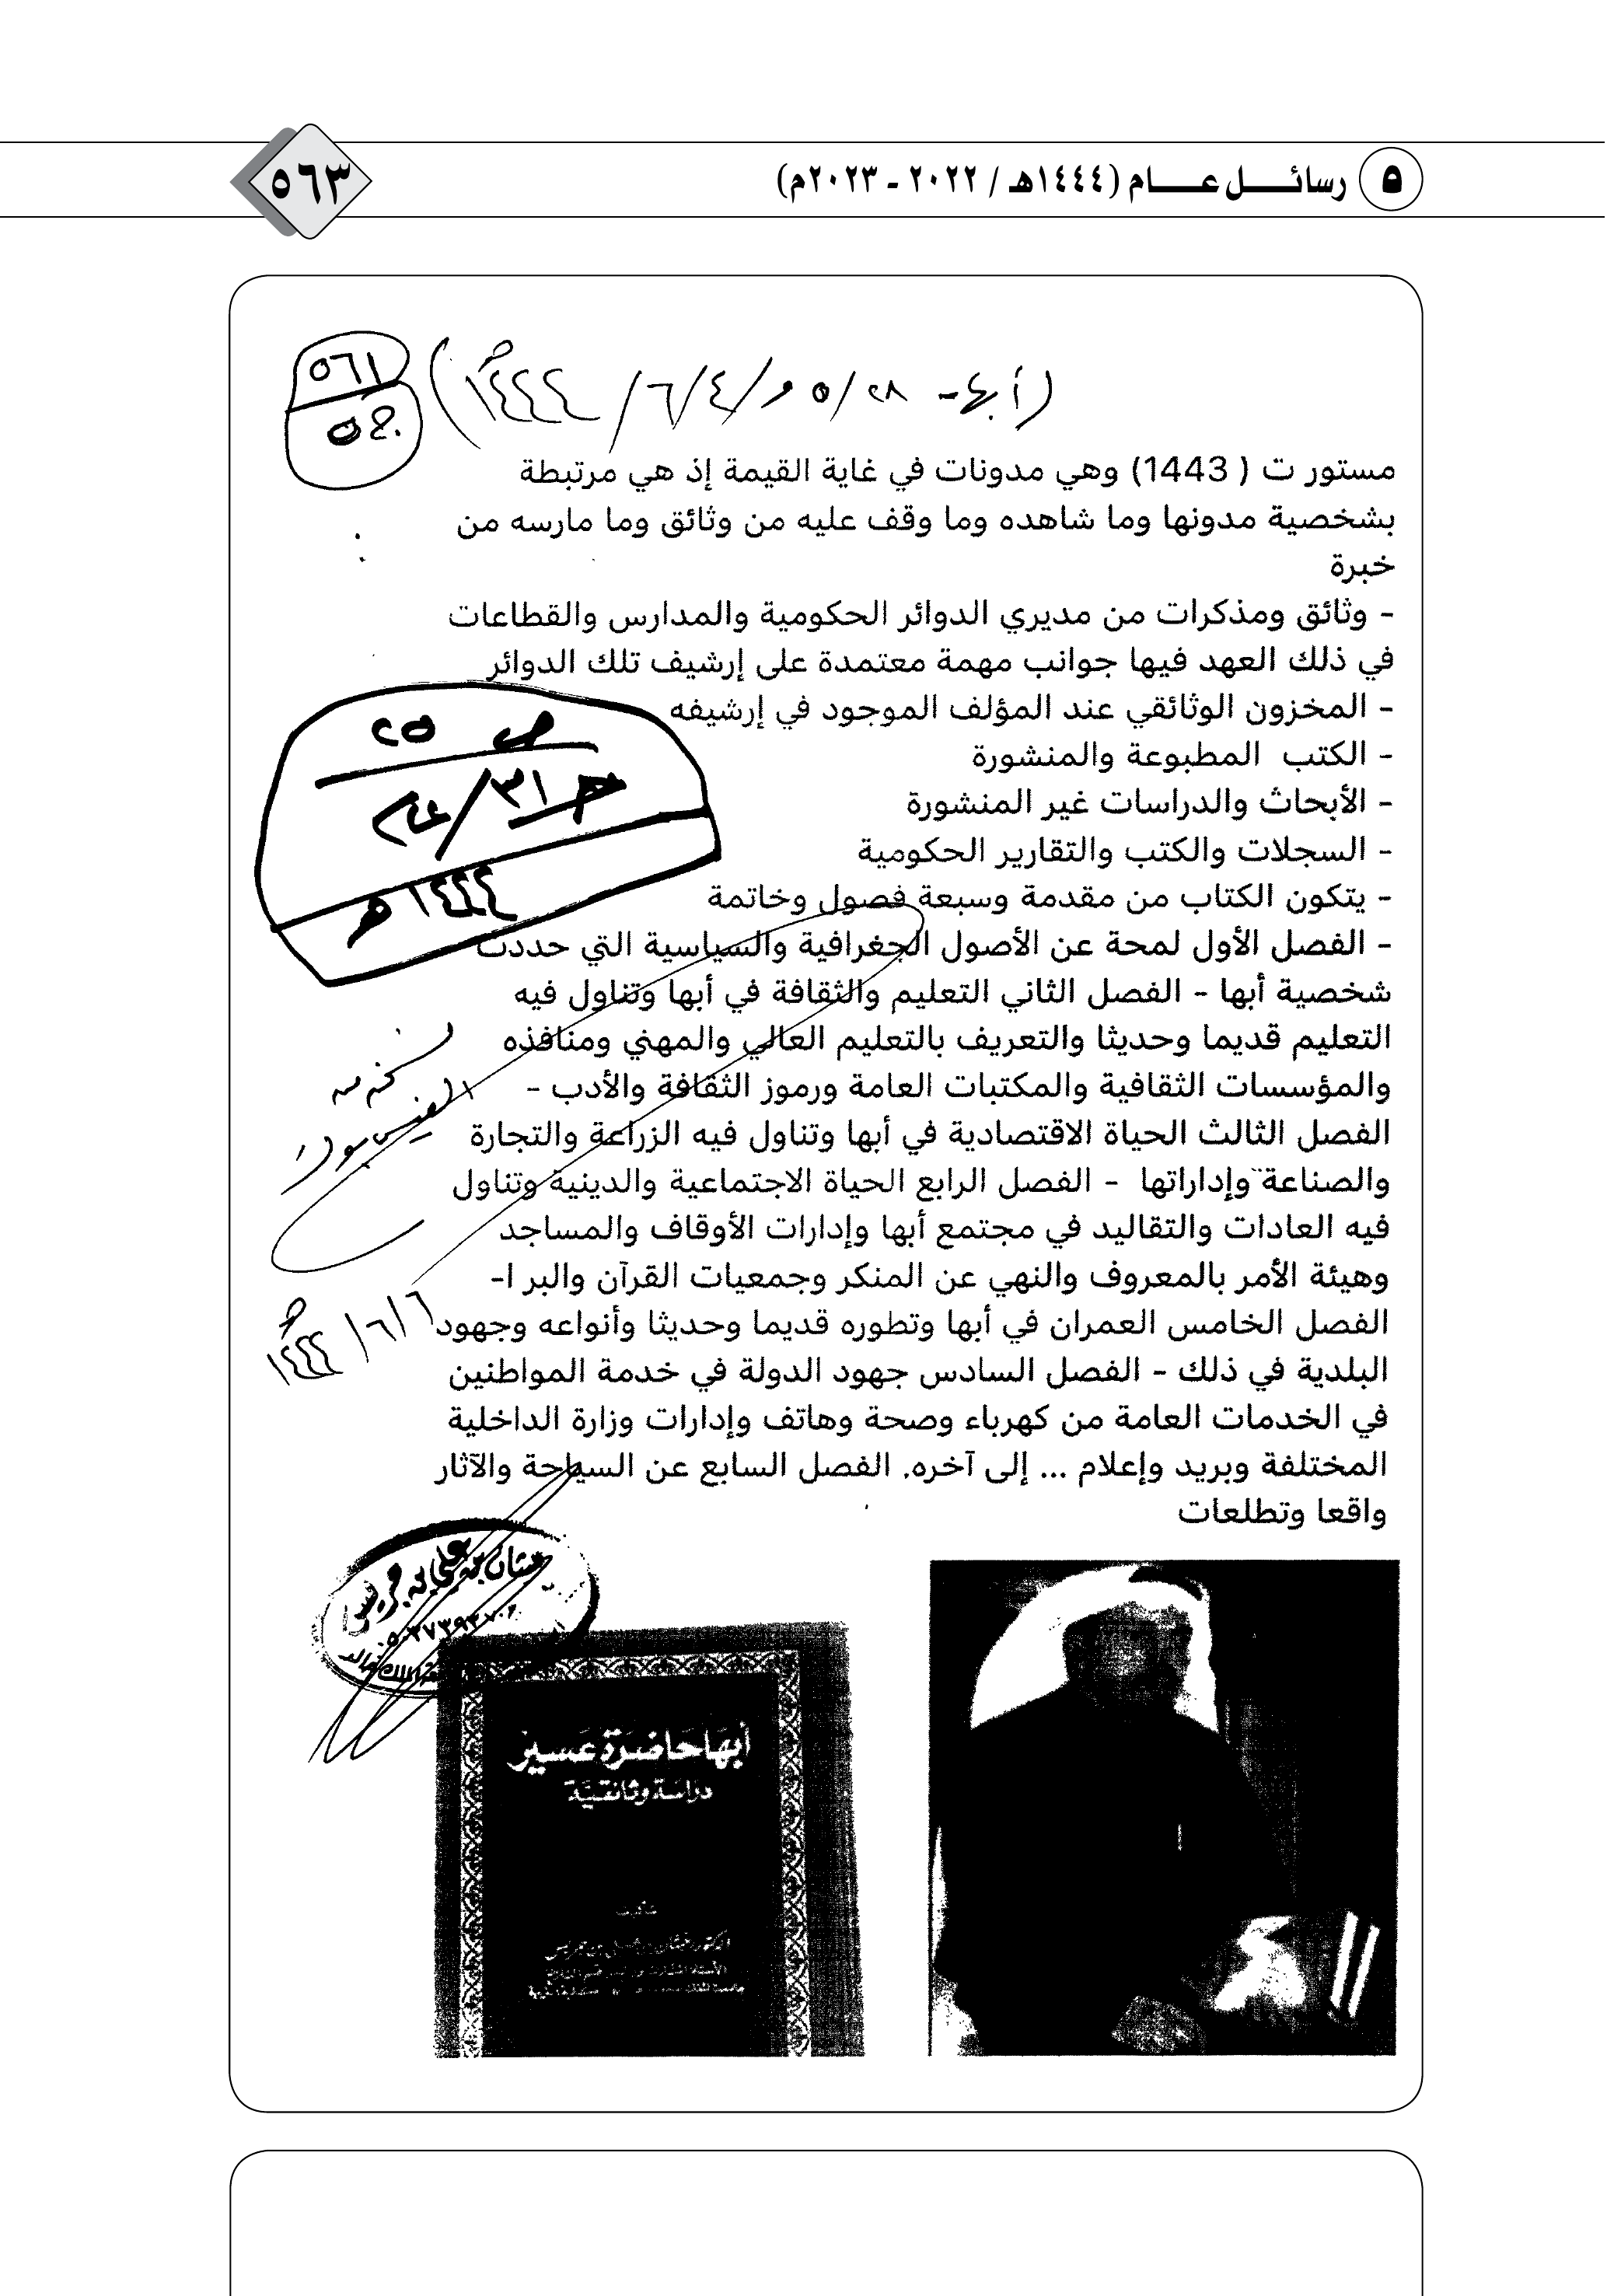 ٥ رسائل عام (١٤٤٤هـ / ٢٠٢٢ - ٢٠٢٣م)
٥٦٣
(أبها - ٢٨/٥ و ٦/٤/ ١٤٤٤هـ)
٥٦١
مستور ت ( 1443) وهي مدونات في غاية القيمة إذ هي مرتبطة
بشخصية مدونها وما شاهده وما وقف عليه من وثائق وما مارسه من
خبرة
- وثائق ومذكرات من مديري الدوائر الحكومية والمدارس والقطاعات
في ذلك العهد فيها جوانب مهمة معتمدة على إرشيف تلك الدوائر
- المخزون الوثائقي عند المؤلف الموجود في إرشيفه
- الكتب المطبوعة والمنشورة
- الأبحاث والدراسات غير المنشورة
- السجلات والكتب والتقارير الحكومية
- يتكون الكتاب من مقدمة وسبعة فصول وخاتمة
- الفصل الأول لمحة عن الأصول الجغرافية والسياسية التي حددت
شخصية أبها - الفصل الثاني التعليم والثقافة في أبها وتناول فيه
التعليم قديما وحديثا والتعريف بالتعليم العالي والمهني ومنافذه
والمؤسسات الثقافية والمكتبات العامة ورموز الثقافة والأدب -
الفصل الثالث الحياة الاقتصادية في أبها وتناول فيه الزراعة والتجارة
والصناعة وإداراتها - الفصل الرابع الحياة الاجتماعية والدينية وتناول
فيه العادات والتقاليد في مجتمع أبها وإدارات الأوقاف والمساجد
وهيئة الأمر بالمعروف والنهي عن المنكر وجمعيات القرآن والبر ا-
الفصل الخامس العمران في أبها وتطوره قديما وحديثا وأنواعه وجهود
البلدية في ذلك - الفصل السادس جهود الدولة في خدمة المواطنين
في الخدمات العامة من كهرباء وصحة وهاتف وإدارات وزارة الداخلية
المختلفة وبريد وإعلام ... إلى آخره. الفصل السابع عن السياحة والآثار
واقعا وتطلعات
ص ٢٥
ج ٣١
١٤٤٤ هـ
نسخة من
٦/٦/ ١٤٤٤هـ
بن علي بن جريس
أبها حاضرة عسير
دراسة وثائقية
تأليف